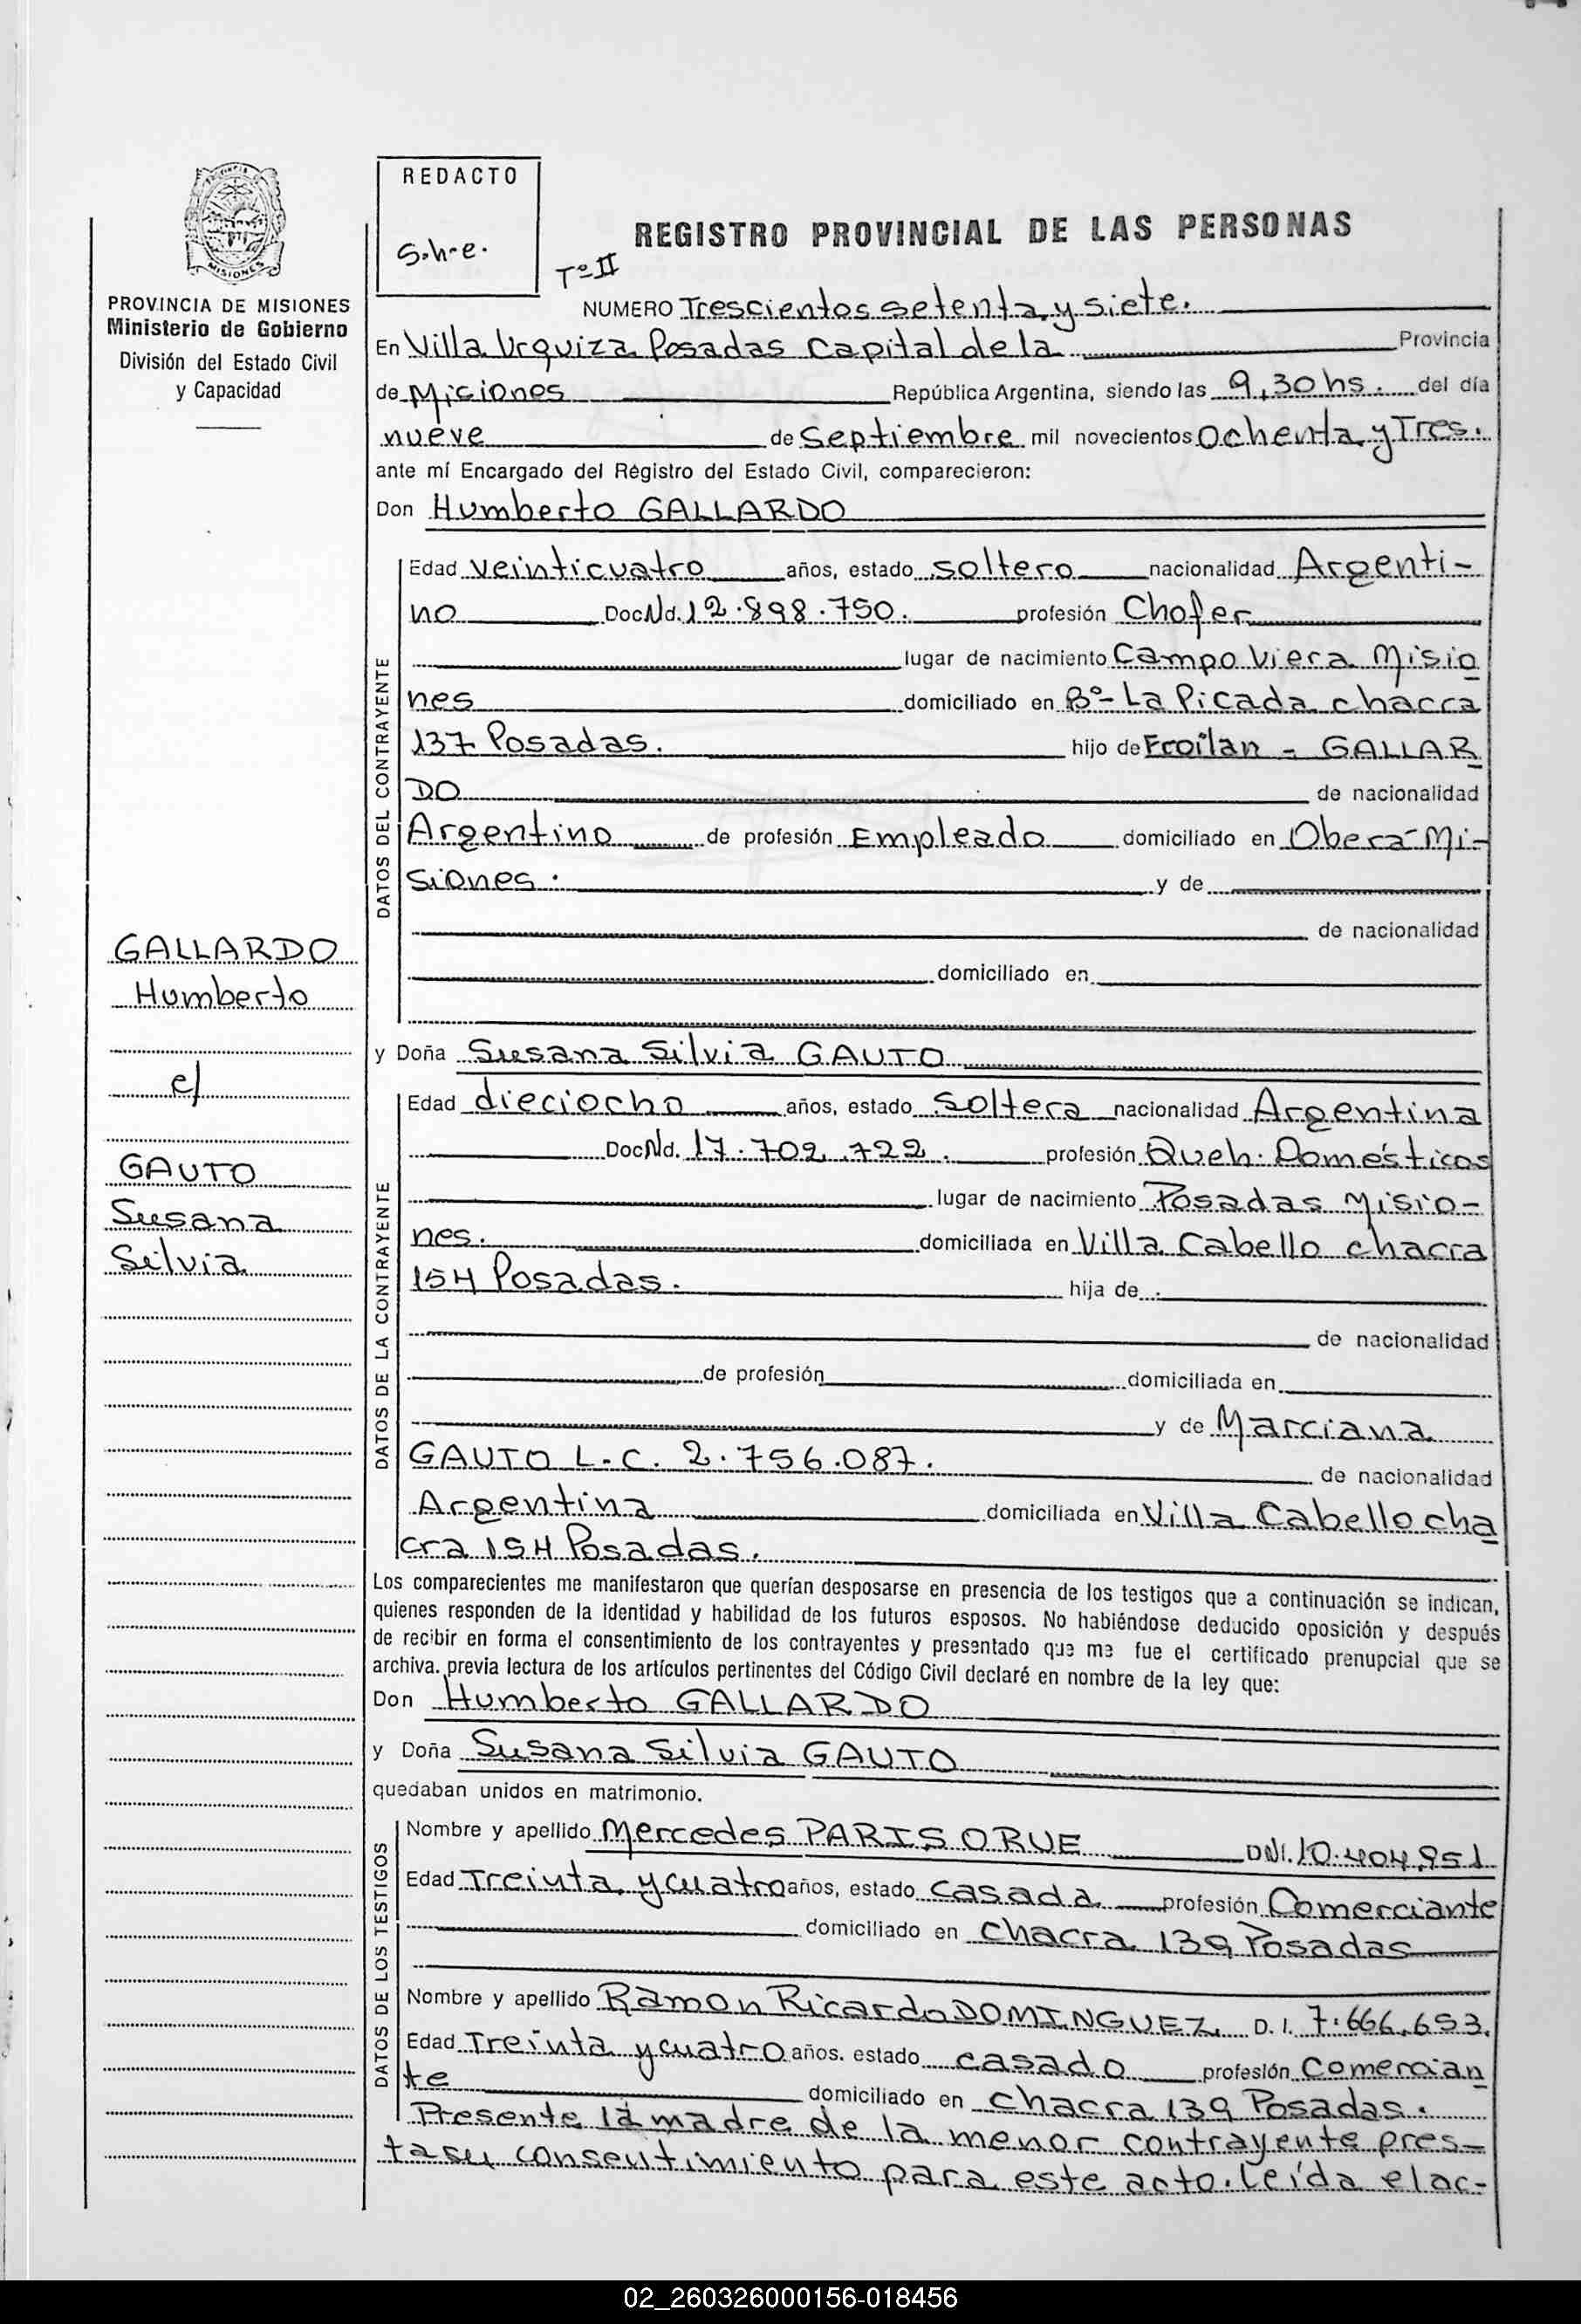 REDACTO
S.h-e.
REGISTRO PROVINCIAL DE LAS PERSONAS
Tº II
PROVINCIA DE MISIONES
Ministerio de Gobierno
División del Estado Civil
y Capacidad
MISIONES
NUMERO Trescientos setenta y siete.
En Villa Urquiza Posadas Capital de la Provincia
de Miciones República Argentina, siendo las 9,30 hs. del día
nueve de Septiembre mil novecientos Ochenta y Tres.
ante mí Encargado del Régistro del Estado Civil, comparecieron:
Don Humberto GALLARDO
DATOS DEL CONTRAYENTE
Edad veinticuatro años, estado soltero nacionalidad Argenti-
no Doc Nd. 12.898.750. profesión Chofer
lugar de nacimiento Campo Viera Misio
nes domiciliado en Bº- La Picada chacra
137 Posadas. hijo de Froilan - GALLAR
DO de nacionalidad
Argentino de profesión Empleado domiciliado en Obera-Mi-
siones. y de
de nacionalidad
domiciliado en
GALLARDO
Humberto
c/
GAUTO
Susana
Silvia
y Doña Susana Silvia GAUTO
DATOS DE LA CONTRAYENTE
Edad dieciocho años, estado Soltera nacionalidad Argentina
Doc Nd. 17.702.722. profesión Queh. Domésticos
lugar de nacimiento Posadas Misio-
nes. domiciliada en Villa Cabello chacra
154 Posadas. hija de
de nacionalidad
de profesión domiciliada en
y de Marciana
GAUTO L.C. 2.756.087. de nacionalidad
Argentina domiciliada en Villa Cabello cha
cra 154 Posadas.
Los comparecientes me manifestaron que querían desposarse en presencia de los testigos que a continuación se indican,
quienes responden de la identidad y habilidad de los futuros esposos. No habiéndose deducido oposición y después
de recibir en forma el consentimiento de los contrayentes y presentado que me fue el certificado prenupcial que se
archiva. previa lectura de los artículos pertinentes del Código Civil declaré en nombre de la ley que:
Don Humberto GALLARDO
y Doña Susana Silvia GAUTO
quedaban unidos en matrimonio.
DATOS DE LOS TESTIGOS
Nombre y apellido Mercedes PARIS ORUE DNI. 10.404.951
Edad Treinta y cuatro años, estado casada profesión Comerciante
domiciliado en chacra 139 Posadas
Nombre y apellido Ramon Ricardo DOMINGUEZ D.I. 7.666.653.
Edad Treinta y cuatro años. estado casado profesión Comercian
te domiciliado en chacra 139 Posadas.
Presente la madre de la menor contrayente pres-
ta su consentimiento para este acto. Leída el ac-
02_260326000156-018456